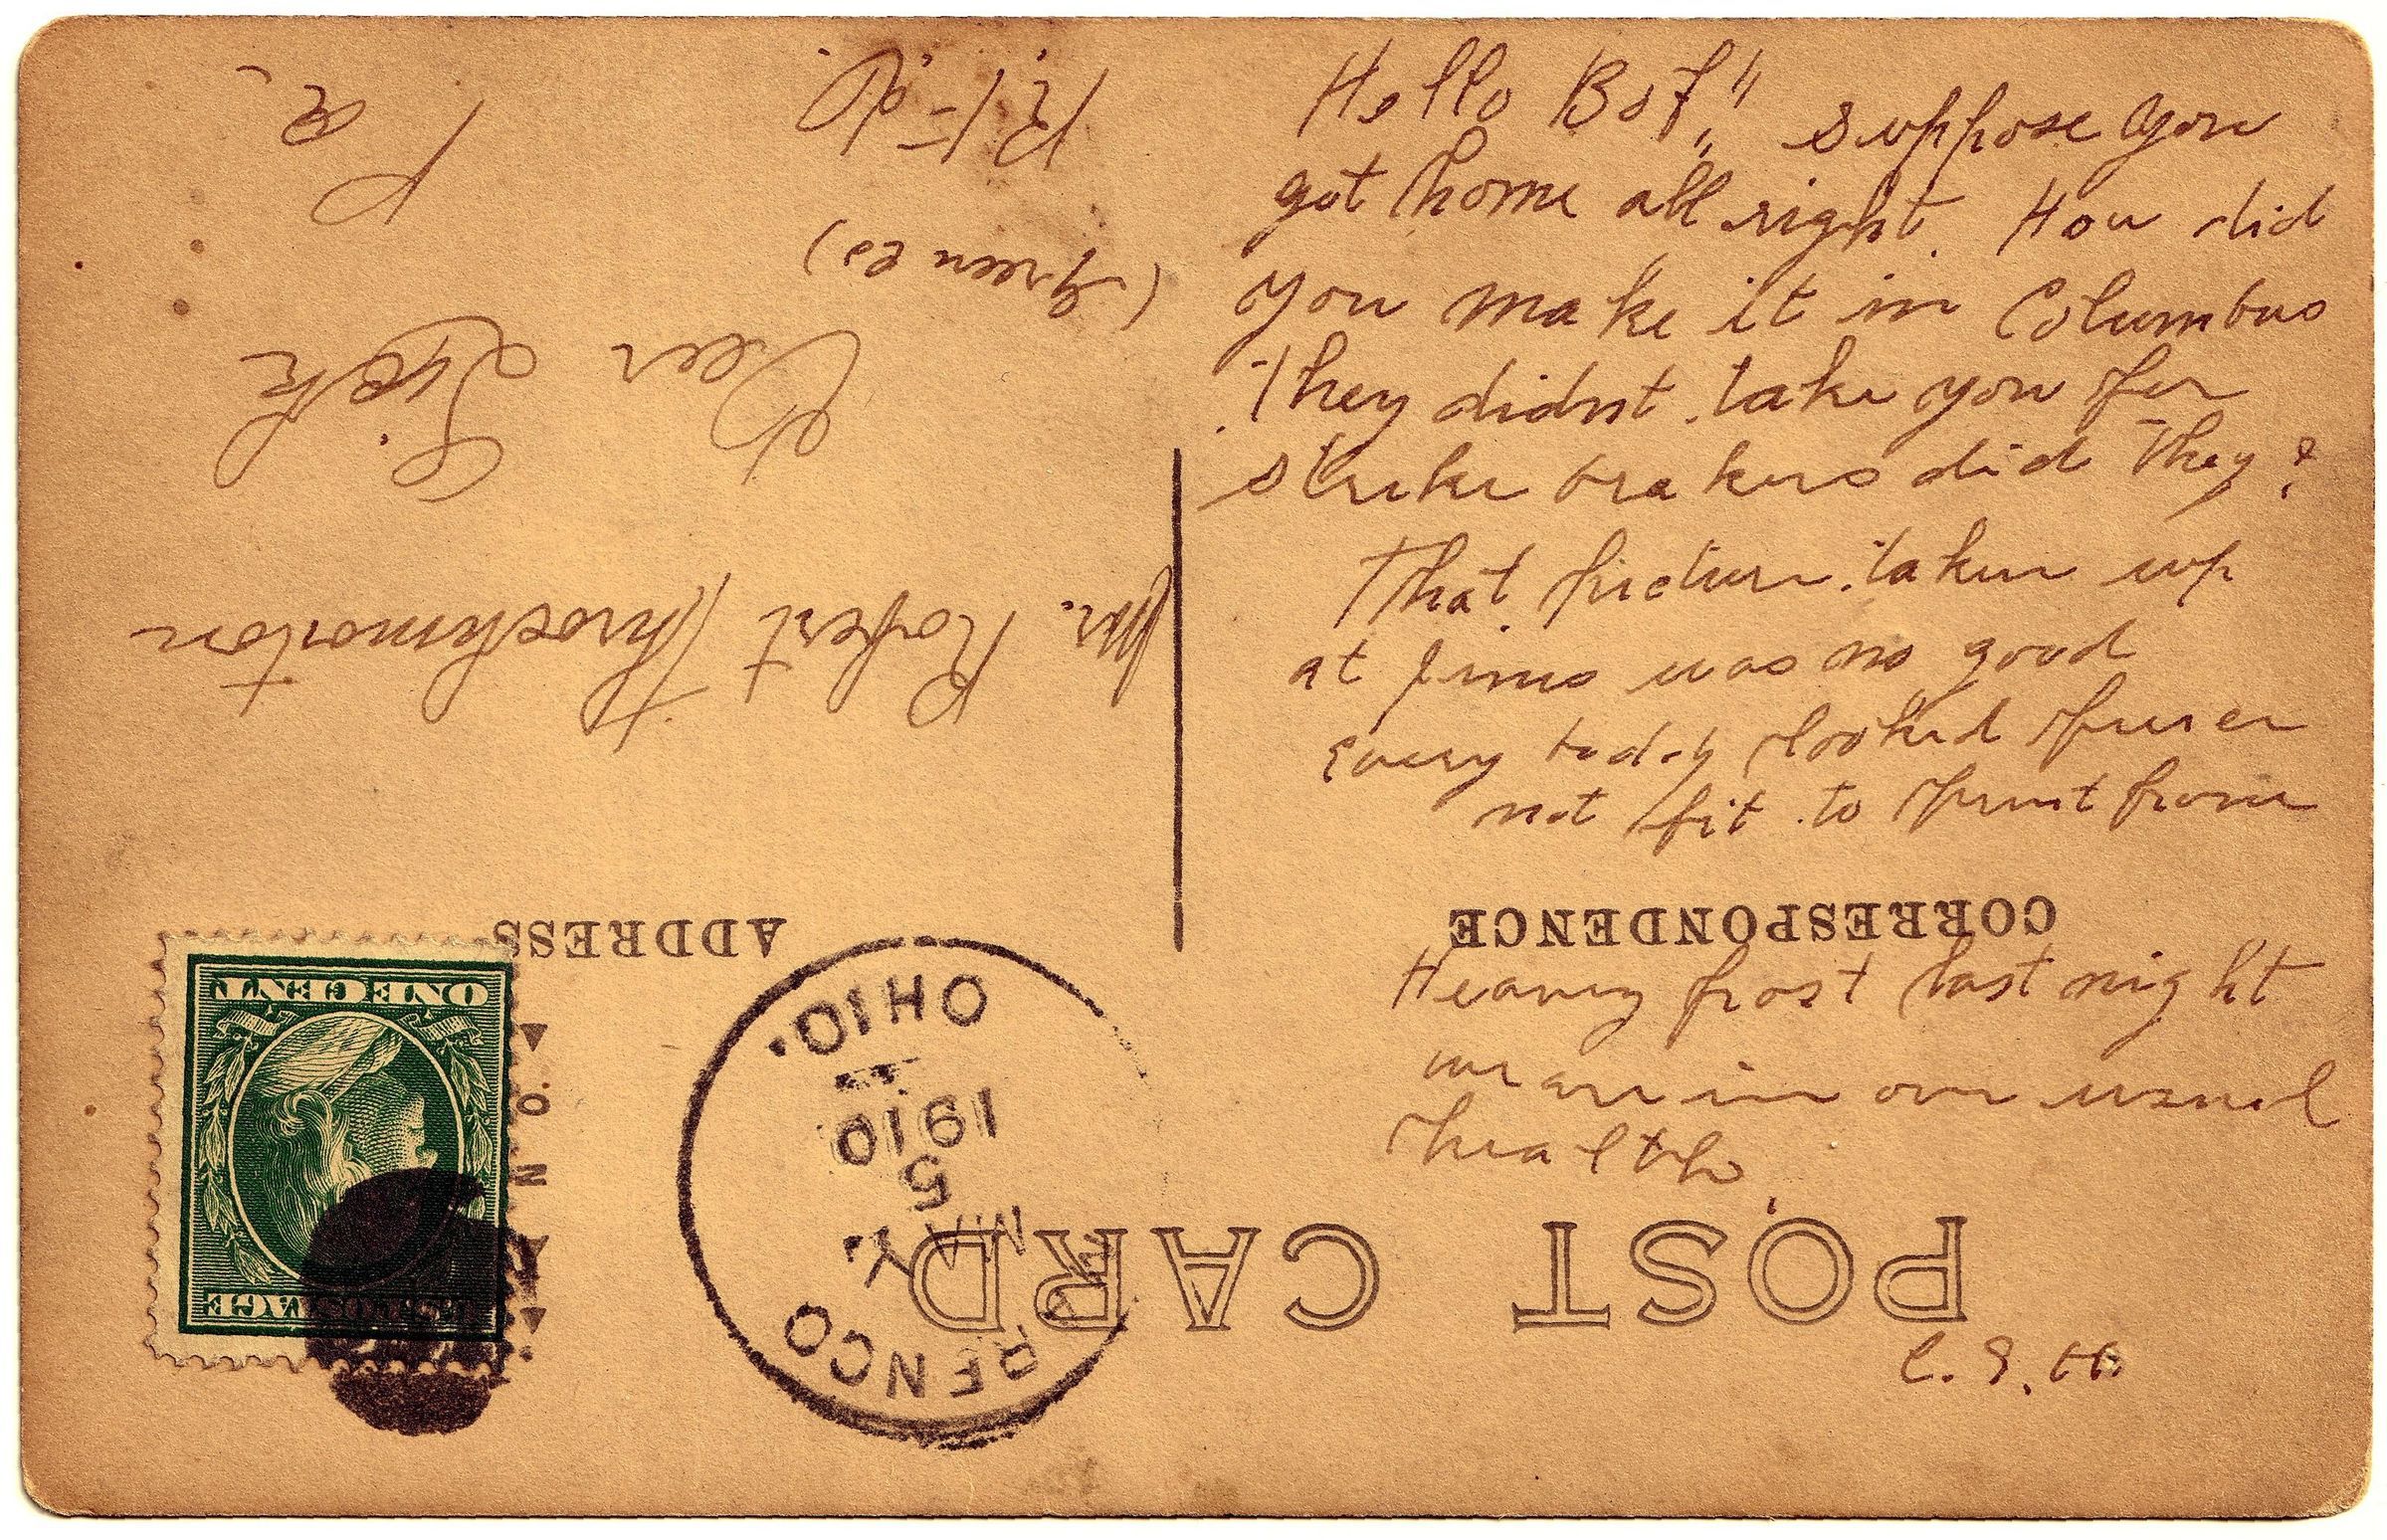 Hello Bof" suppose you
got home all right. How did
you make it in Columbus
They didnt take you for
strike brakers did they?
That picture taken up
at Jims was no good
Every body looked
not fit to print from
Heavey frost last night
we are in our usual
health.
C. E. H.
POST CARD
CORRESPONDENCE
ADDRESS
MAY
5
1910
OHIO.
U.S. POSTAGE
ONE CENT
Mr. Robert Throckmorton
Lick
(Green co)
R.F.D.
Pa